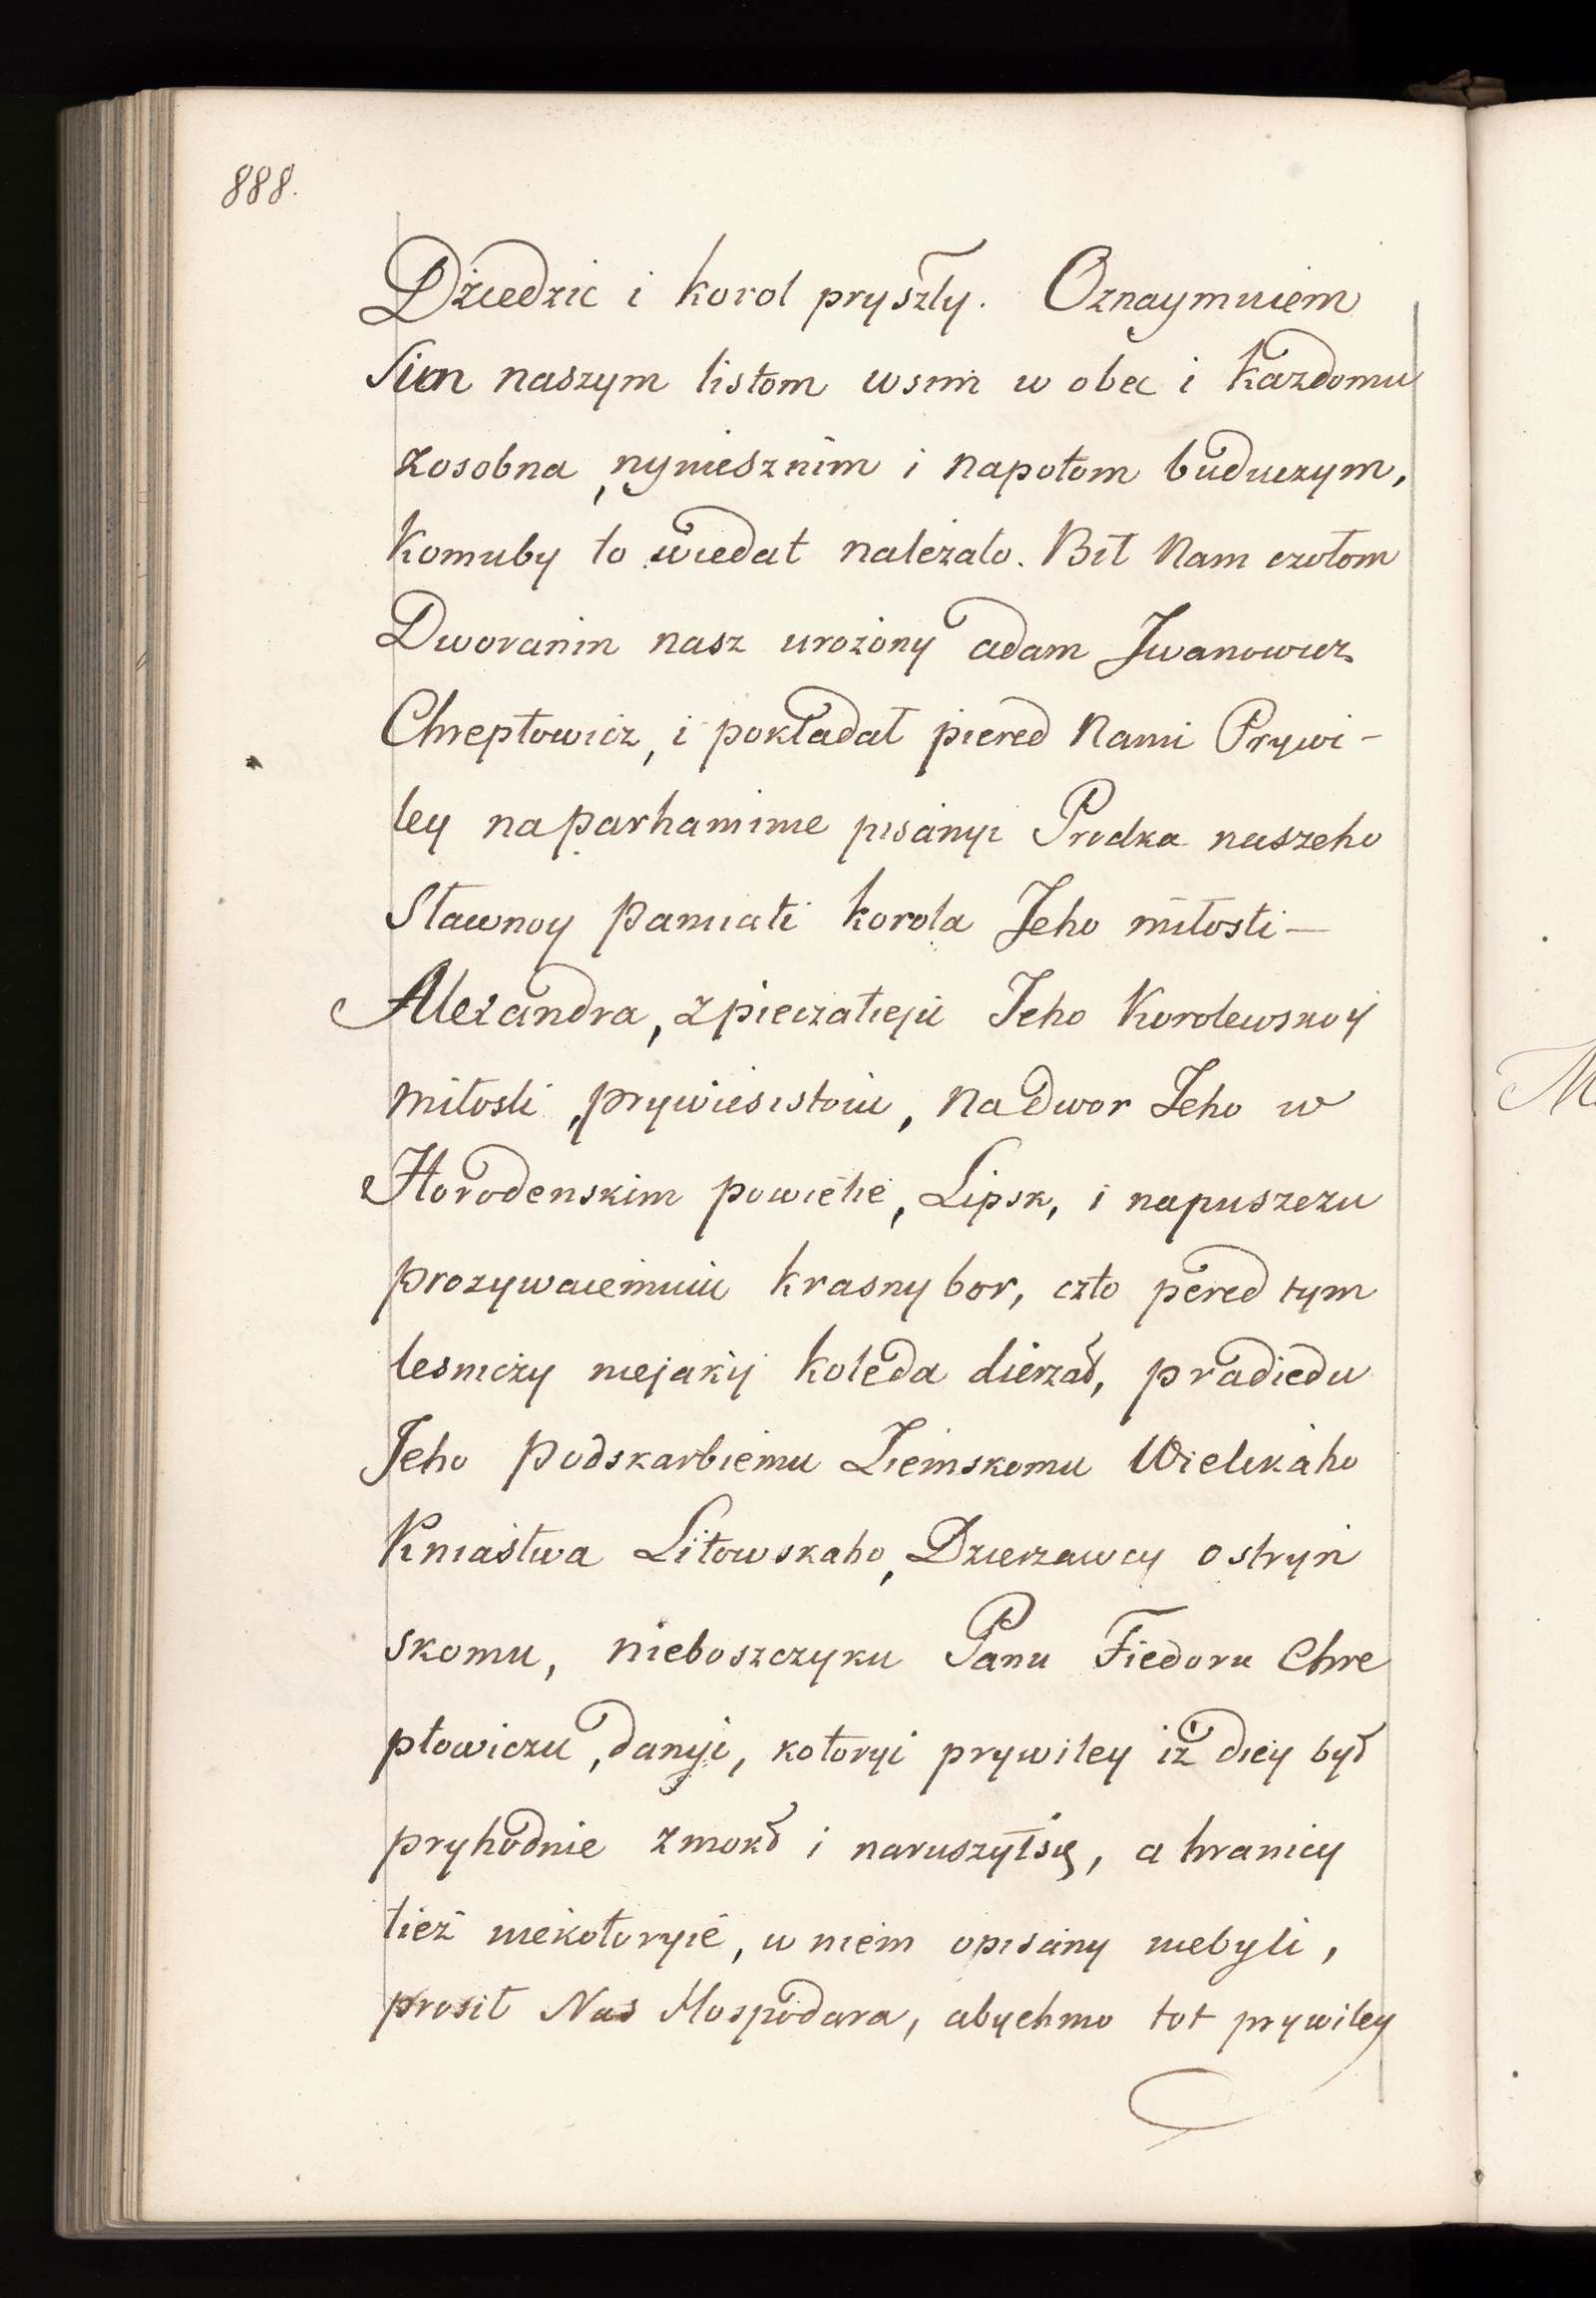 888.
Dziedzic i korol pryszły. Oznaymuiem
Sim naszym listom wsim w obec i każdomu
zosobna, nyniesznim i napotom buduczym,
komuby to wiedat należało. Bił Nam czołom
Dworanin nasz urożony adam Jwanowicz
Chreptowicz, i pokładał piered Nami Prywi-
ley naparhamime pisanyi Prodka naszeho
Sławnoy Pamiati korola Jeho miłosti—
Alexandra, zpieczatieju Jeho Korolewskoy
miłosti, prywiesistoiu, na Dwor Jeho w
Horodenskim powietie, Lipsk, i napuszczu
prozywaiemuiu krasny bor, czto pered tym
lesniczy niejakij koleda dierzał, pradiedu
Jeho Podskarbiemu Ziemskomu Wielikaho
Kniastwa Litowskaho, Dzierzawcy ostryn
skomu, nieboszczyku Panu Fiedoru Chre
ptowiczu, danyi, kotoryi prywiley iż diey był
pryhodnie zmokł i naruszyłsię, a hranicy
tież niekotoryie, w niem opisany niebyli,
prosił Nas Hospodara, abychmo tot prywiley